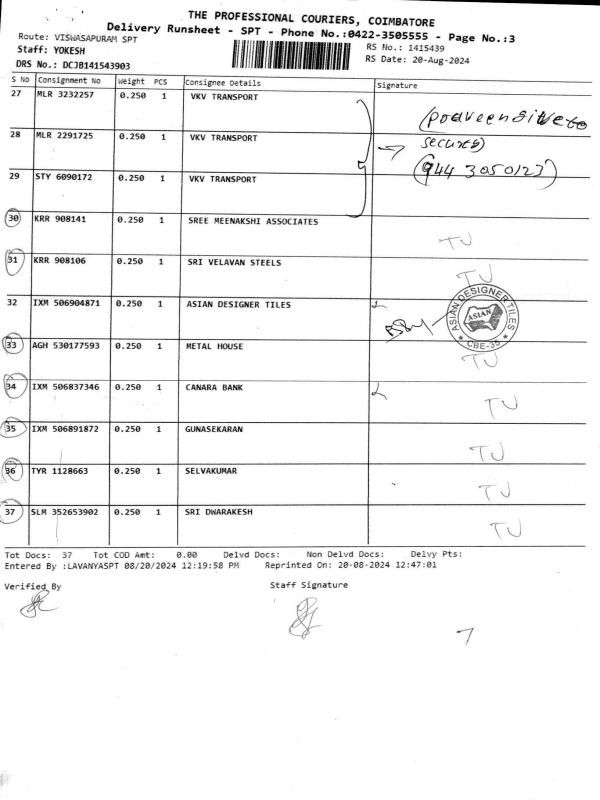 THE PROFESSIONAL COURIERS, COIMBATORE
Delivery Runsheet - SPT - Phone No.:0422-3505555 - Page No.:3
Route: VISWASAPURAM SPT
RS No.: 1415439
Staff: YOKESH
RS Date: 20-Aug-2024
DRS No.: DCJB141543903
S No Consignment No Weight PCS Consignee Details Signature
27 MLR 3232257 0.250 1 VKV TRANSPORT
28 MLR 2291725 0.250 1 VKV TRANSPORT
(944 3050123)
29 STY 6090172 0.250 1 VKV TRANSPORT
30 KRR 908141 0.250 1 SREE MEENAKSHI ASSOCIATES
TJ
31 KRR 908106 0.250 1 SRI VELAVAN STEELS
TJ
32 IXM 506904871 0.250 1 ASIAN DESIGNER TILES
ASIAN DESIGNER TILES
ASIAN
* CBE-35 *
33 AGH 530177593 0.250 1 METAL HOUSE
TJ
34 IXM 506837346 0.250 1 CANARA BANK
TJ
35 IXM 506891872 0.250 1 GUNASEKARAN
TJ
36 TYR 1128663 0.250 1 SELVAKUMAR
TJ
37 SLM 352653902 0.250 1 SRI DWARAKESH
TJ
Tot Docs: 37 Tot COD Amt: 0.00 Delvd Docs: Non Delvd Docs: Delvy Pts:
Entered By :LAVANYASPT 08/20/2024 12:19:58 PM Reprinted On: 20-08-2024 12:47:01
Verified By Staff Signature
7